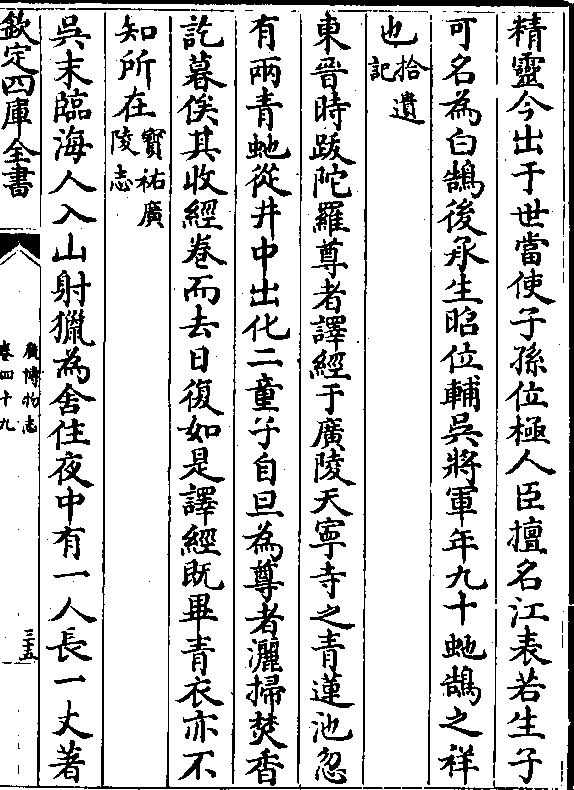 精靈今出于世當使子孫位極人臣擅名江表若生子
可名為白鵠後承生昭位輔吳將軍年九十虵鵠之祥
也拾遺記
東晉時跋陀羅尊者譯經于廣陵天寧寺之青蓮池忽
有兩青虵從井中出化二童子自旦為尊者灑掃焚香
訖暮俟其收經卷而去日復如是譯經既畢青衣亦不
知所在寳祐廣陵志
吳末臨海人入山射獵為舍住夜中有一人長一丈著
欽定四庫全書
廣博物志
卷四十九
三五